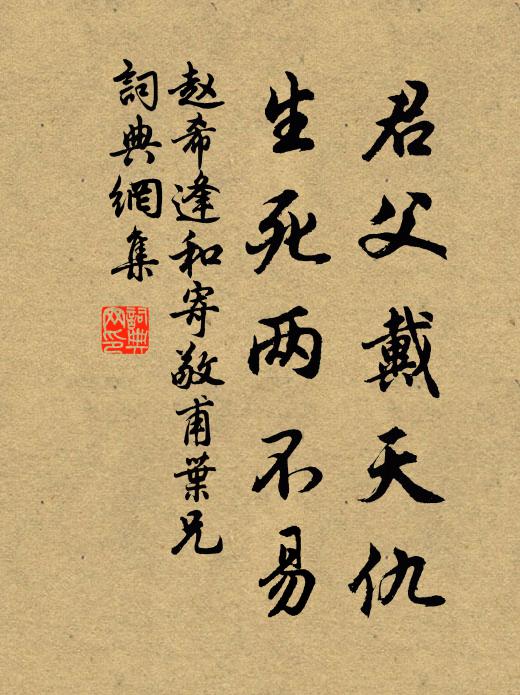 君父戴天仇
生死两不易
赵希逢和寄敬甫葉兄
詞典網集
詞典网印